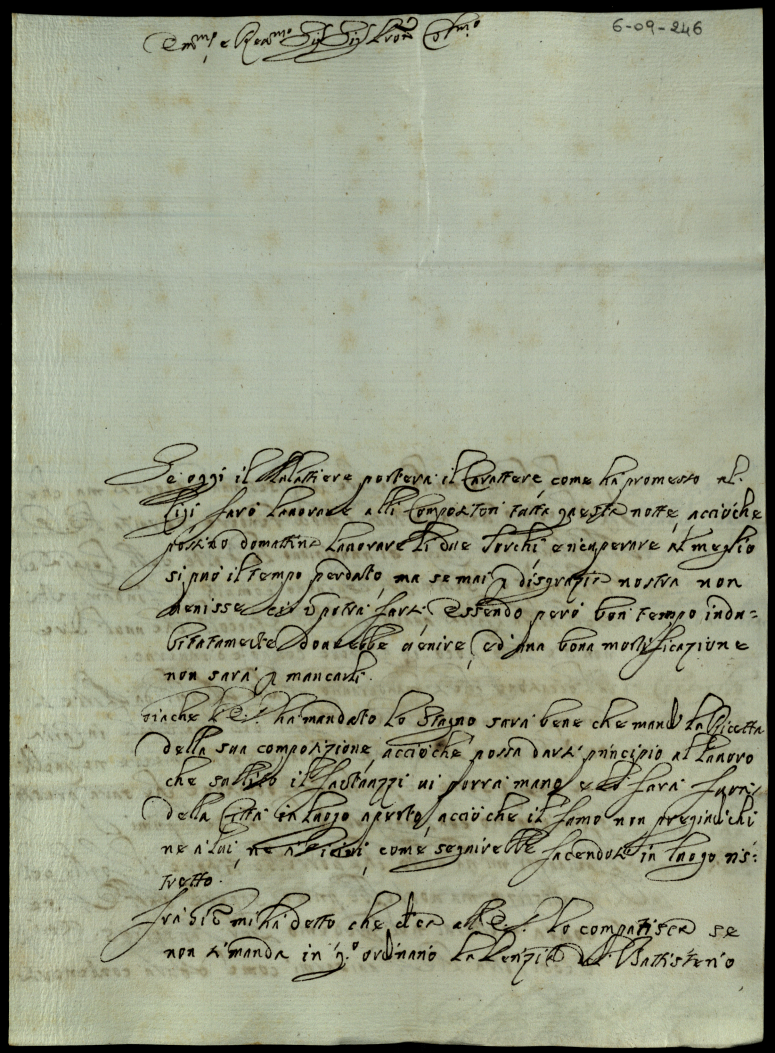 6-09-246
Em.mo e Rev.mo Sig. Sig. Pron Col.mo
Se oggi il porterà il Carattere come ha promesso al
farò lavorare alli Compositori tutta questa notte acciòche
possino domattina lavorare li due Torchi e ricuperare al meglio
si può il tempo perduto, ma se mai p disgrazia nostra non
venisse si potrà farsi, Essendo però bon tempo indu=
bitatamente dovrebbe venire, ed una bona mortificazione
non sarà p mancarli.
Giache V. E. ha mandato lo Stagno sarà bene che mandi la Ricetta
della sua composizione, acciòche possa darsi principio al lavoro
che subbito il vi porrà mano e si farà fuori
della Città in luogo aperto, acciòche il fumo non pregiudichi
ne a lui, ne a Vicini come seguirebbe facendosi in luogo ris=
tretto.
Fra Gio mi ha detto che dica all' E. V. lo compatisca se
non si manda in q.o ordinario la del Battisterio